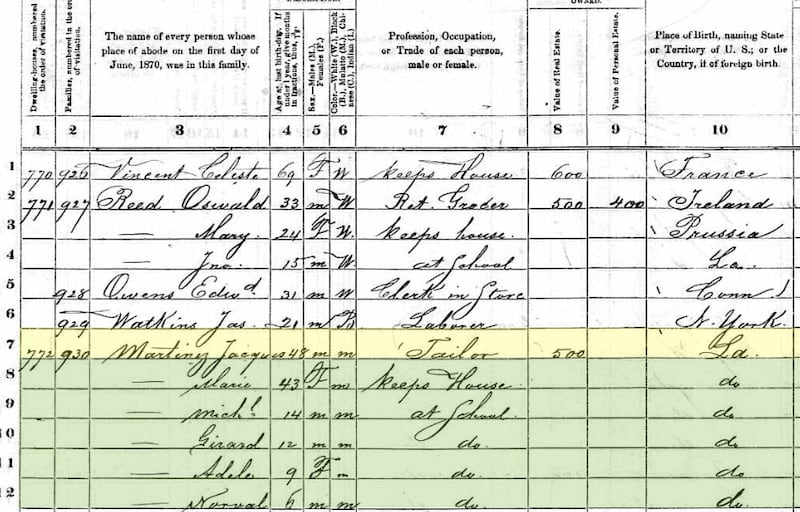 OWNED.
Dwelling-houses, numbered in the order of visitation.
Families, numbered in the order of visitation.
The name of every person whose place of abode on the first day of June, 1870, was in this family.
Age at last birth-day. If under 1 year, give months in fractions, thus,
Sex.—Males (M.), Females (F.)
Color.—White (W.), Black (B.), Mulatto (M.), Chinese (C.), Indian (I.)
Profession, Occupation, or Trade of each person, male or female.
Value of Real Estate.
Value of Personal Estate.
Place of Birth, naming State or Territory of U. S.; or the Country, if of foreign birth.
1 2 3 4 5 6 7 8 9 10
1 770 926 Vincent Celeste 69 F W Keeps House 600 France
2 771 927 Reed Oswald 33 m W Ret. Grocer 500 400 Ireland
3 — Mary 24 F W. Keeps house. Prussia
4 — Jno. 15 m W. at School La.
5 928 Owens Edwd. 31 m W Clerk in Store Conn
6 929 Watkins Jas. 21 m B Laborer N. York.
7 772 930 Martinez Jacques 48 m m Tailor 500 La.
8 — Marie 43 F m Keeps House do
9 — Michl. 14 m m at School. do.
10 — Girard 12 m m do. do
11 — Adele 9 F m do. do
12 — Norval 6 m m do. do.